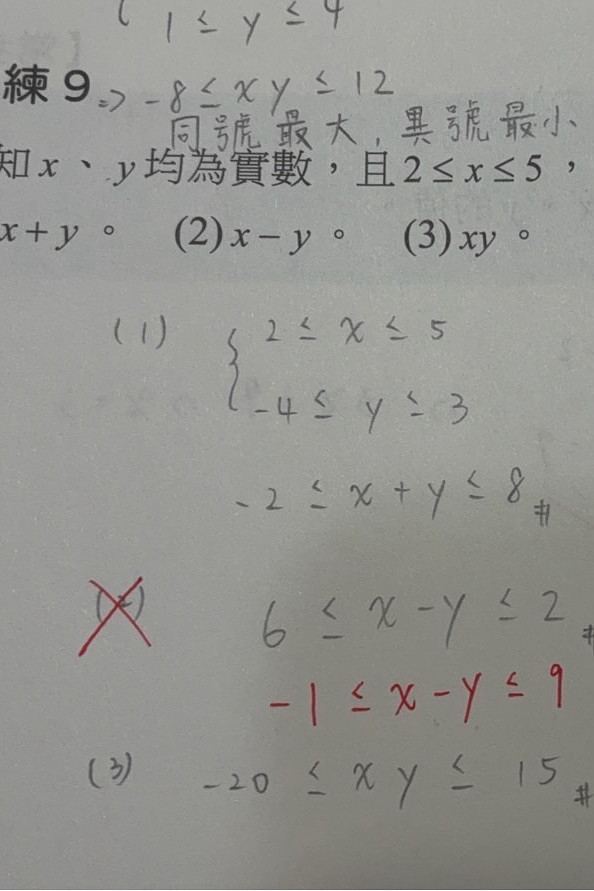 1 ≤ y ≤ 4
練9 => -8 ≤ xy ≤ 12
同號最大，異號最小
知 x、y 均為實數，且 2 ≤ x ≤ 5，
x + y。 (2) x − y。 (3) xy。
(1) { 2 ≤ x ≤ 5
-4 ≤ y ≤ 3
-2 ≤ x + y ≤ 8 #
(2) 6 ≤ x - y ≤ 2 #
-1 ≤ x - y ≤ 9
(3) -20 ≤ xy ≤ 15 #